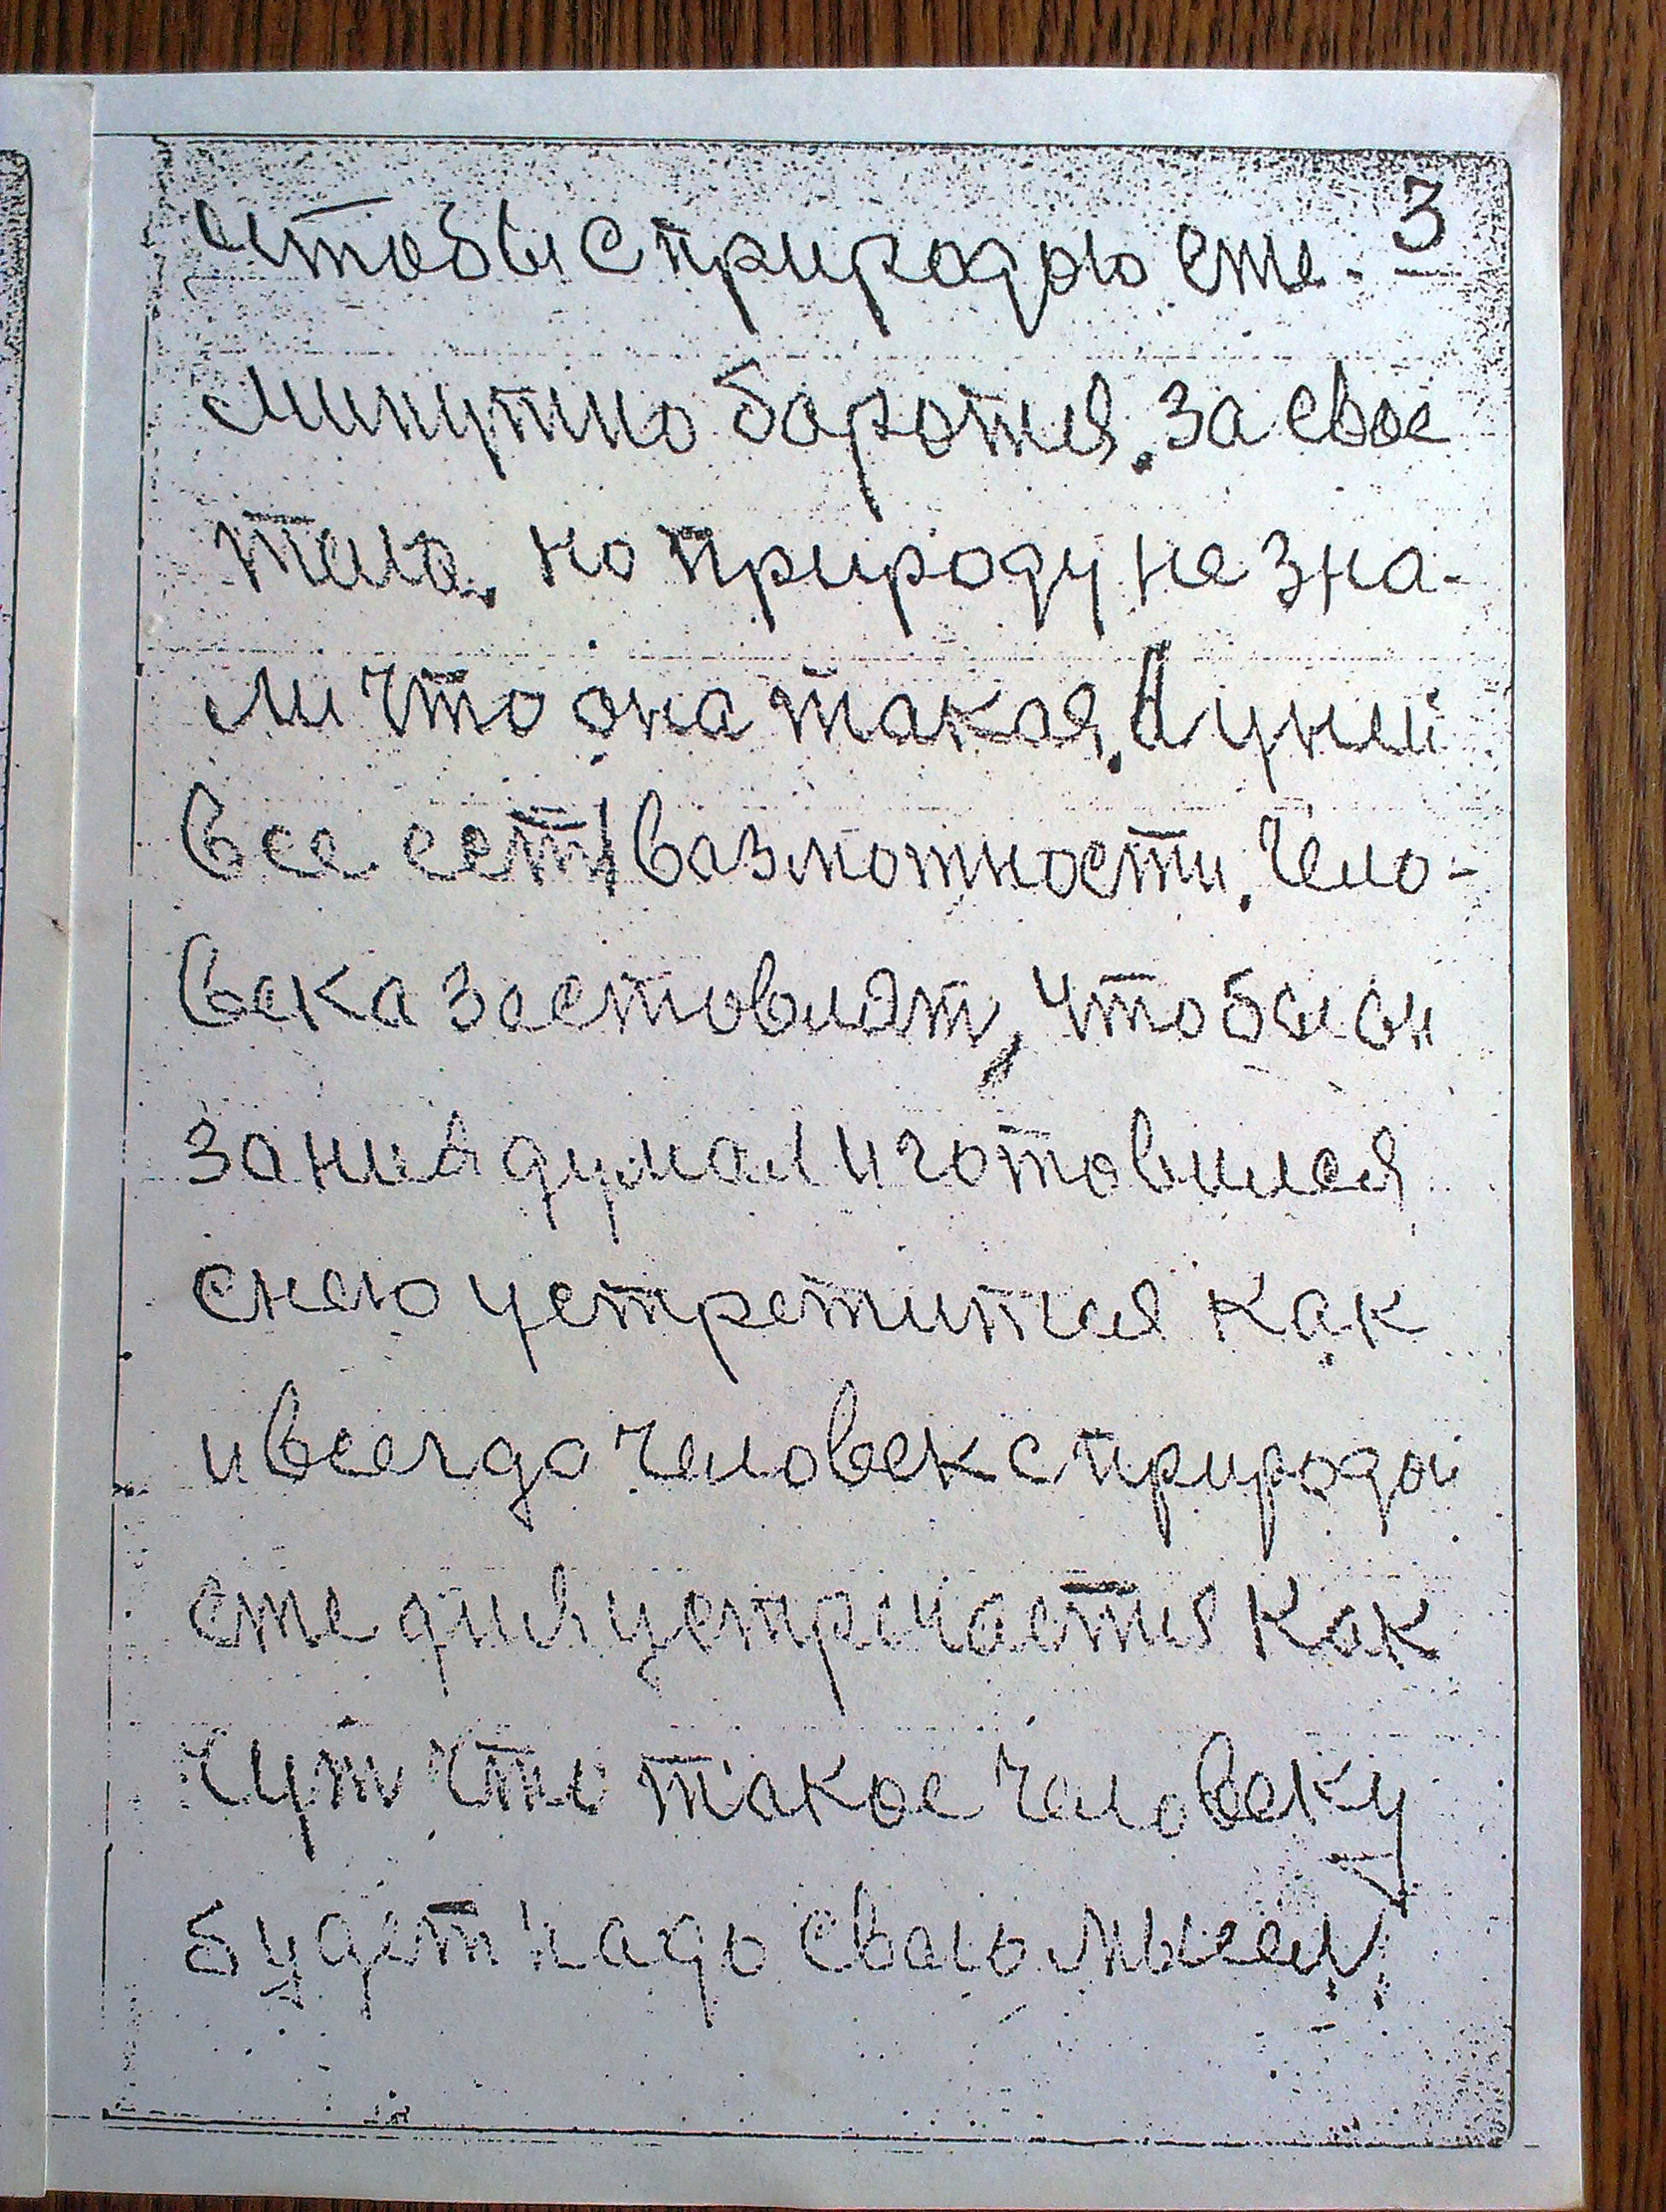 3
чтобы с природою еже-
минутно боротся. за свое
тело, но природу не зна-
ли что она такая. А у ней
все есть возмотности. Чело-
века заставлят, чтобы он
за ния думал и готовился
с нею устретится как
и всегда человек с природой
устречается как
чут что такое человеку
будет надо. Сваю мысел